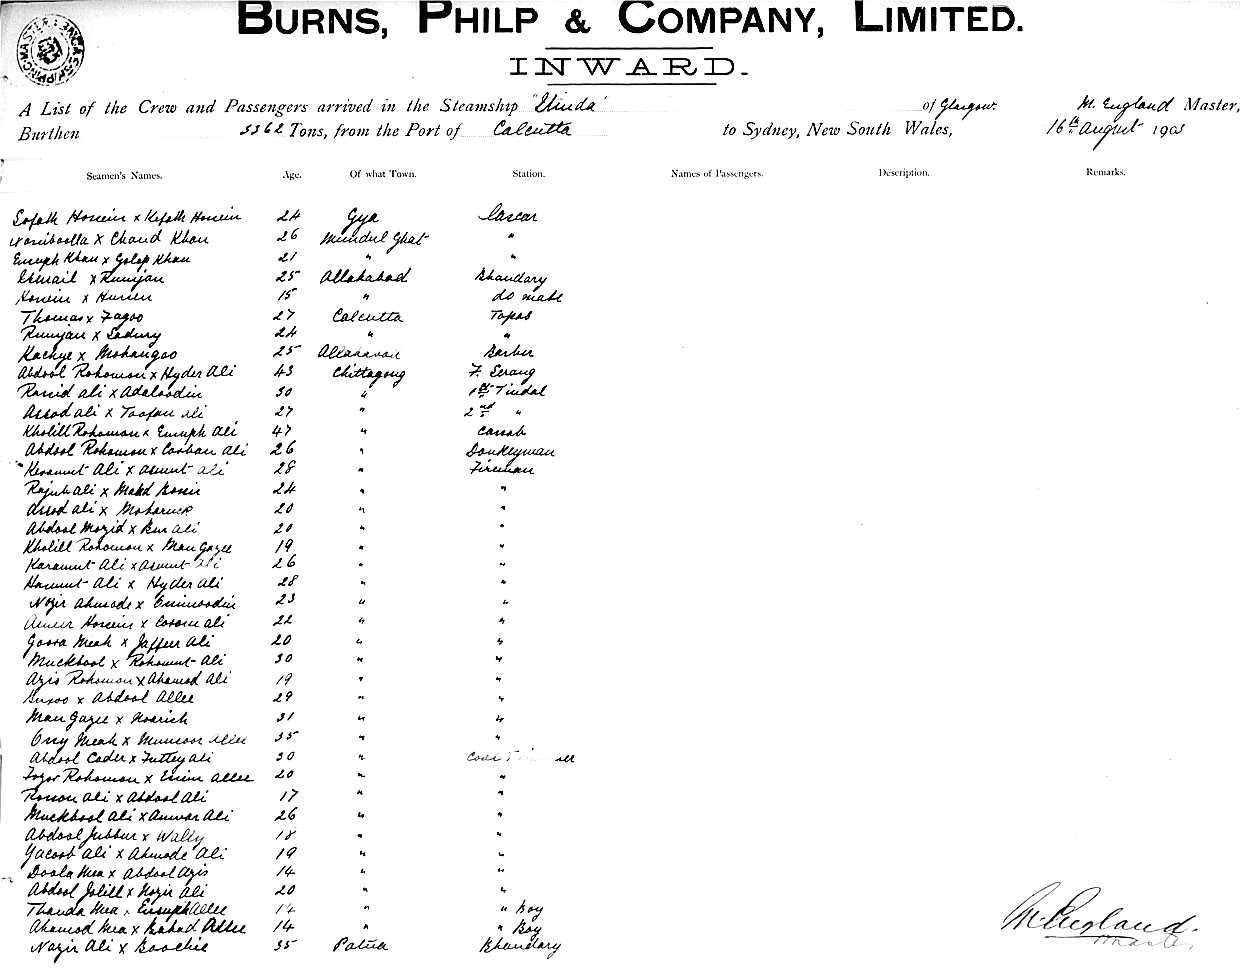 BURNS, PHILP & COMPANY, LIMITED.
INWARD.
A List of the Crew and Passengers arrived in the Steamship "Itinda" of Glasgow M. England Master,
Burthen 5362 Tons, from the Port of Calcutta to Sydney, New South Wales, 16th August 1905
Seamen's Names. Age. Of what Town. Station. Names of Passengers. Description. Remarks.
Hossein x Kefath Hossein 24 Gya Lascar
x Chand Khan 26 Mundul Ghat "
Khan x Golap Khan 21 " "
Ismail x Rumjan 25 Allahabad Bhandary
Hosein x Hussen 15 " do mate
Thomas x Fagoo 27 Calcutta Topas
Rumjan x 24 " "
x Mohangoo 25 Barber
Abdool Rohomon x Hyder Ali 43 Chittagong F. Serang
Ali x 30 " 1st Tindal
Assod Ali x Toofan Ali 27 " 2nd "
Kholill Rohomon x Ali 47 " Cassab
Abdool Rohomon x Corban Ali 26 " Donkeyman
Keramut Ali x Asmut Ali 28 " Fireman
Ali x 24 " "
Assod Ali x 20 " "
Abdool Mozid x Ali 20 " "
Kholill Rohomon x Man Gazee 19 " "
Karamut Ali x Asmut Ali 26 " "
Ali x Hyder Ali 28 " "
Nozir Ahmade x 23 " "
Ameer Hossein x Ali 22 " "
Goora Meah x Jaffeer Ali 20 " "
Muckbool x Rohomut Ali 30 " "
Azis Rohomon x Ahamod Ali 19 " "
x Abdool Allee 29 " "
Man Gazee x 31 " "
Meah x Munsoor Allee 35 " "
Abdool Cader x Futtey Ali 30 "
Rohomon x Allee 20 " "
Ali x Abdool Ali 17 " "
Muckbool Ali x Anwar Ali 26 " "
Abdool Jubbur x Wally 18 " "
Yacoob Ali x Ahmode Ali 19 " "
Doola Mea x Abdool Azis 14 " "
Abdool Jolill x Nozir Ali 20 " "
Thanda Mea x Allee 14 " " Boy
Ahamod Mea x Allee 14 " " Boy
Nazir Ali x Boochie 35 Patna Bhandary
M. England
Master.